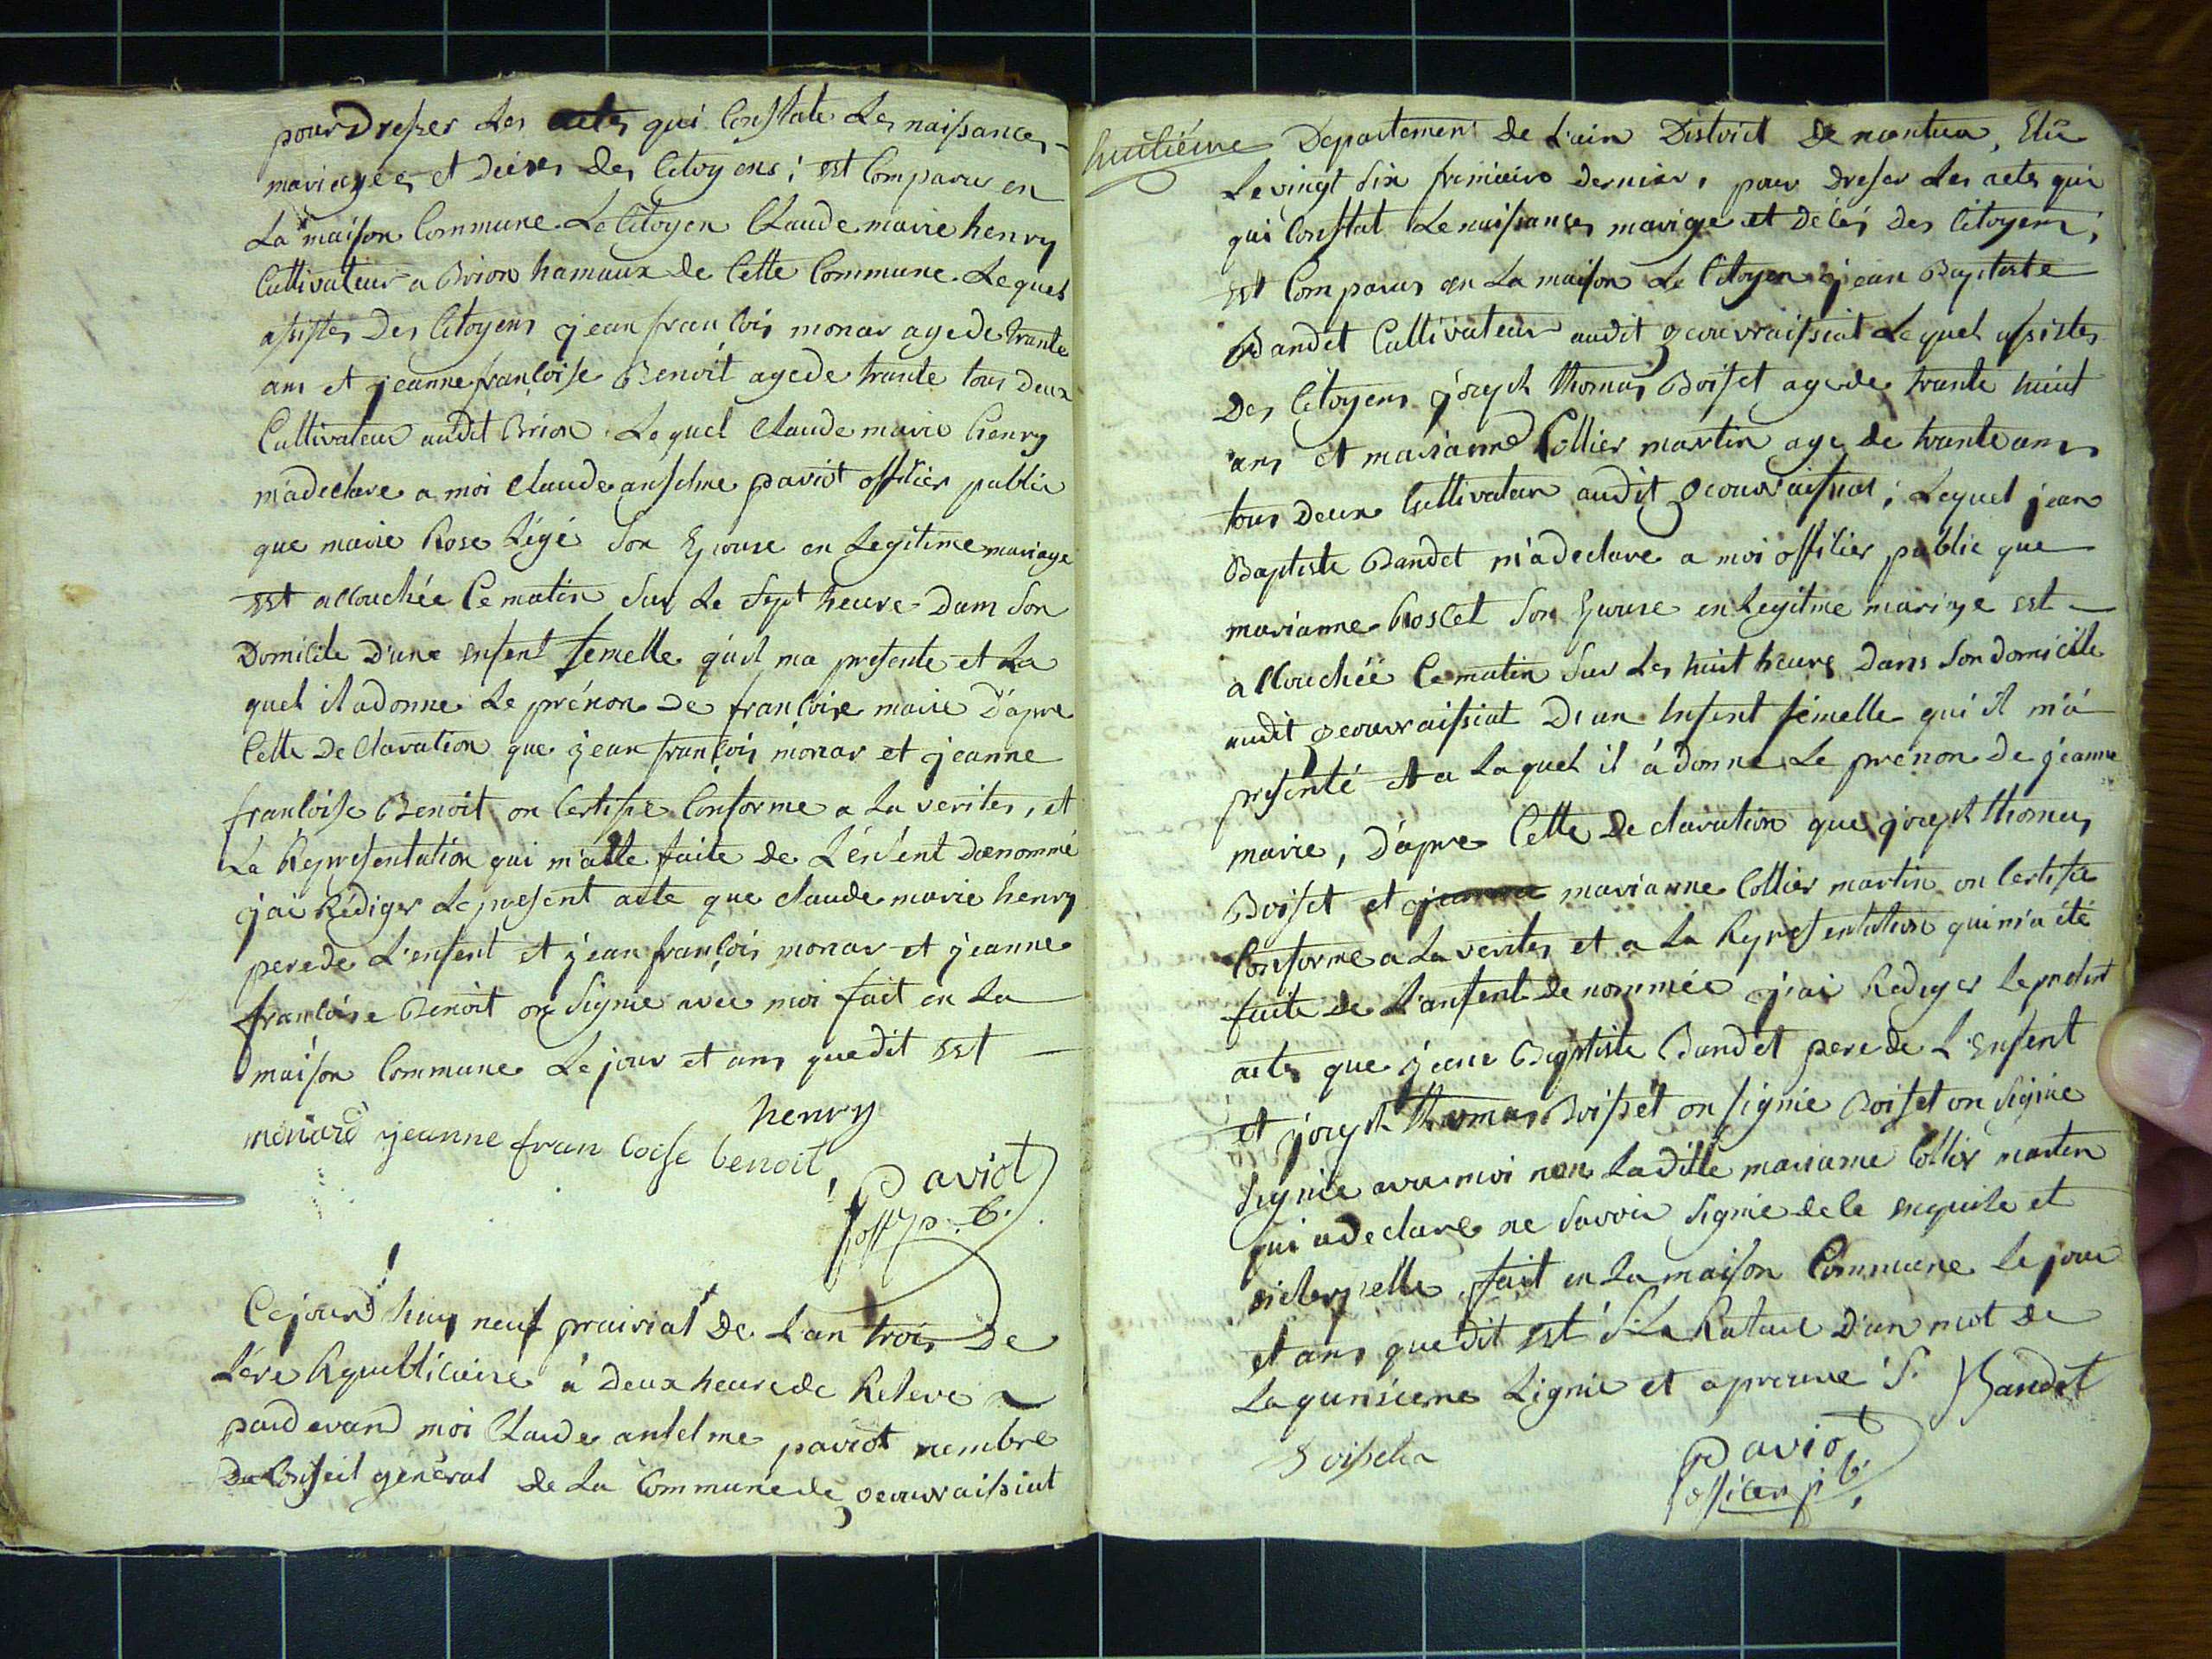 pour Dresser Les actes qui Constate Les naissances
mariages et Deces des Citoyens; est Comparus en
La maison Commune Le Citoyen Claude marie henry
Cultivateur a Brion hamaux de Cette Commune Lequel
assistes Des Citoyens jean francois monar age de trante
ans et jeanne francoise Benoit age de trante tous Deux
Cultivateur audit Brion Lequel Claude marie henry
m'adeclare a moi Claude anselme paviot officier public
que marie Rose Légé Son Epouse en Legitime mariage
est accouchée Ce matin Sur Le Sept heure Dans Son
Domicile D'une enfent femelle qu'il ma presente et La
quel il adonne Le prénon de francoise marie D'apre
Cette Declaration que jean francois monar et jeanne
francoise Benoit on Certifie Conforme a La verites, et
La Representation qui m'a éte faite de L'enfent denommé
j'ai Rédiger Le present acte que claude marie henry
pere de L'enfent et jean francois monar et jeanne
francoise Benoit on Signie avec moi fait en La
maison Commune Le jour et ans que dit est
henry
monard jeanne francoise benoit
Paviot
off p. b.
Cejourd'huy neuf prairial De L'an trois De
L'ére Republicaine à Deux heure de Releve
pardevand moi Claude anselme paviot membre
Du Conseil général de La Commune de geouvraissiat
huitiéme Departement de L'ain District de nantua, Elu
Le vingt Six frimaire dernier, pour Dresser Les actes qui
qui Constat Le naissances mariage et Décés Des Citoyens;
est Comparus en La maison Le Citoyen jean Baptiste
Bandet Cultivateur audit geouvraissiat Lequel assistes
Des Citoyens joseph thomas Boisset age de trante huit
ans et marianne Collier martin age de trante ans
tous Deux Cultivateur audit geouvraissiat; Lequel jean
Baptiste Bandet m'adeclare a moi officier public que
marianne Croslet Son Epouse en Legitme mariage est
accouchéé Cematin Sur Les huit heure Dans Son domicille
audit geouvraissiat D'un Enfent fémelle qui il m'a
presenté et a Laquel il a donne Le prénon De jeanne
marie, D'apre Cette Declaration que joseph thomas
Boisset et jeanne marianne Collier martin on Certifie
Conforme a La verites et a La Representation qui m'a été
faite de L'anfent denommée j'ai Rediger Le present
actes que jean Baptiste Bandet pere de L'Enfent
et joseph thomas Boisset on signie Boiset on Signie
Signie avec moi non Laditte marianne Collier marten
qui adeclare ne Savoir Signie de le enquise et
interpelle, fait en La maison Commune Le jour
et ans que dit est S. La Rature D'un mot de
La quinsieme Lignie et aprouve S. Bandet
Boisset
Paviot
officier p b.